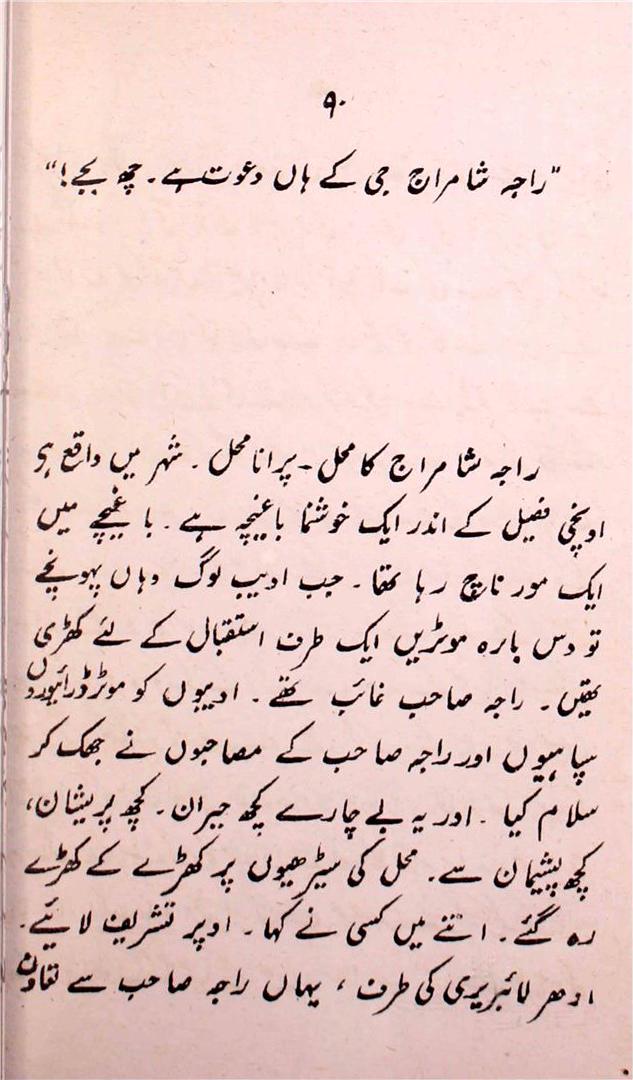 ۹۰
"راجہ شامراج جی کے ہاں دعوت ہے۔ چھ بجے!"
راجہ شامراج کا محل۔ پرانا محل۔ شہر میں واقع ہی
اونچی فصیل کے اندر ایک خوشنما باغیچہ ہے۔ باغیچے میں
ایک مور ناچ رہا تھا۔ جب ادیب لوگ وہاں پہونچے
تو دس بارہ موٹریں ایک طرف استقبال کے لئے کھڑی
تھیں۔ راجہ صاحب غائب تھے۔ ادیبوں کو موٹر ڈرائیوروں
سپاہیوں اور راجہ صاحب کے مصاحبوں نے جھک کر
سلام کیا۔ اور یہ بے چارے کچھ حیران۔ کچھ پریشان،
کچھ پشیمان سے۔ محل کی سیڑھیوں پر کھڑے کے کھڑے
رہ گئے۔ اتنے میں کسی نے کہا۔ اوپر تشریف لائیے۔
ادھر لائبریری کی طرف، یہاں راجہ صاحب سے تعارف